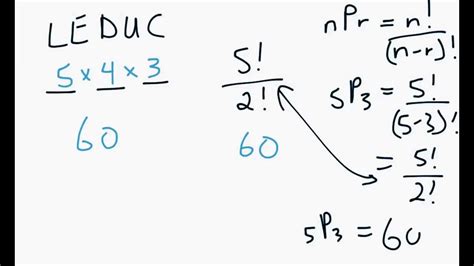 LEDUC
5 × 4 × 3
60
5!
2!
60
nPr = n!
(n-r)!
5P3 = 5!
(5-3)!
= 5!
2!
5P3 = 60